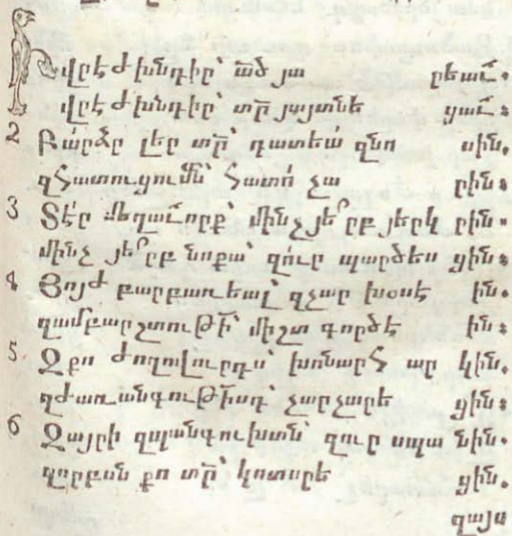 վրէժխնդիր՝ ա֊ծ յա րեաւ.
վրէժխնդիր՝ տր̃ յայտնե ցաւ.
2 Բա՛րձր լեր տր̃՝ դատեա՛ զնո սին.
զհատուցումն՝ հատո՛ չա րին։
3 Տէ՛ր մեղաւորք՝ մինչ յե՞րբ յերկ րին.
մինչ յե՞րբ նոքա՝ զո՛ւր պարծես ցին։
4 Յոյժ բարբառեալ՝ զչար խօսէ ին.
զամբարշտութի՝ միշտ գործէ ին։
5 Զքո ժողովուրդս՝ խոնարհ ար կին.
զժառանգութիսդ՝ չարչարե ցին։
6 Զայրի զպանդուխտն՝ զուր սպա նին.
զորբսն քո տր̃՝ կոտորե ցին.
զայս